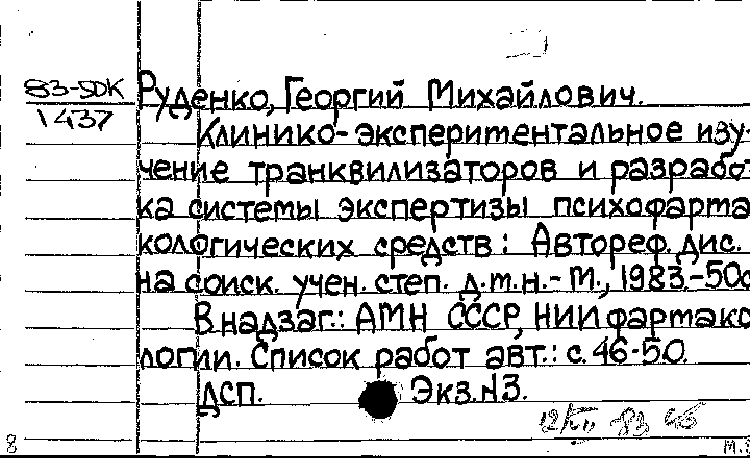 83-5DK
1437
Руденко, Георгий Михайлович.
Клинико-экспериментальное изу-
чение транквилизаторов и разработ
ка системы экспертизы психофарма
кологических средств: Автореф. дис.
на соиск. учен. степ. д.м.н.- М., 1983.-50с
В надзаг.: АМН СССР, НИИ фармако
логии. Список работ авт.: с. 46-50.
ДСП. Экз. №3.
8
М.